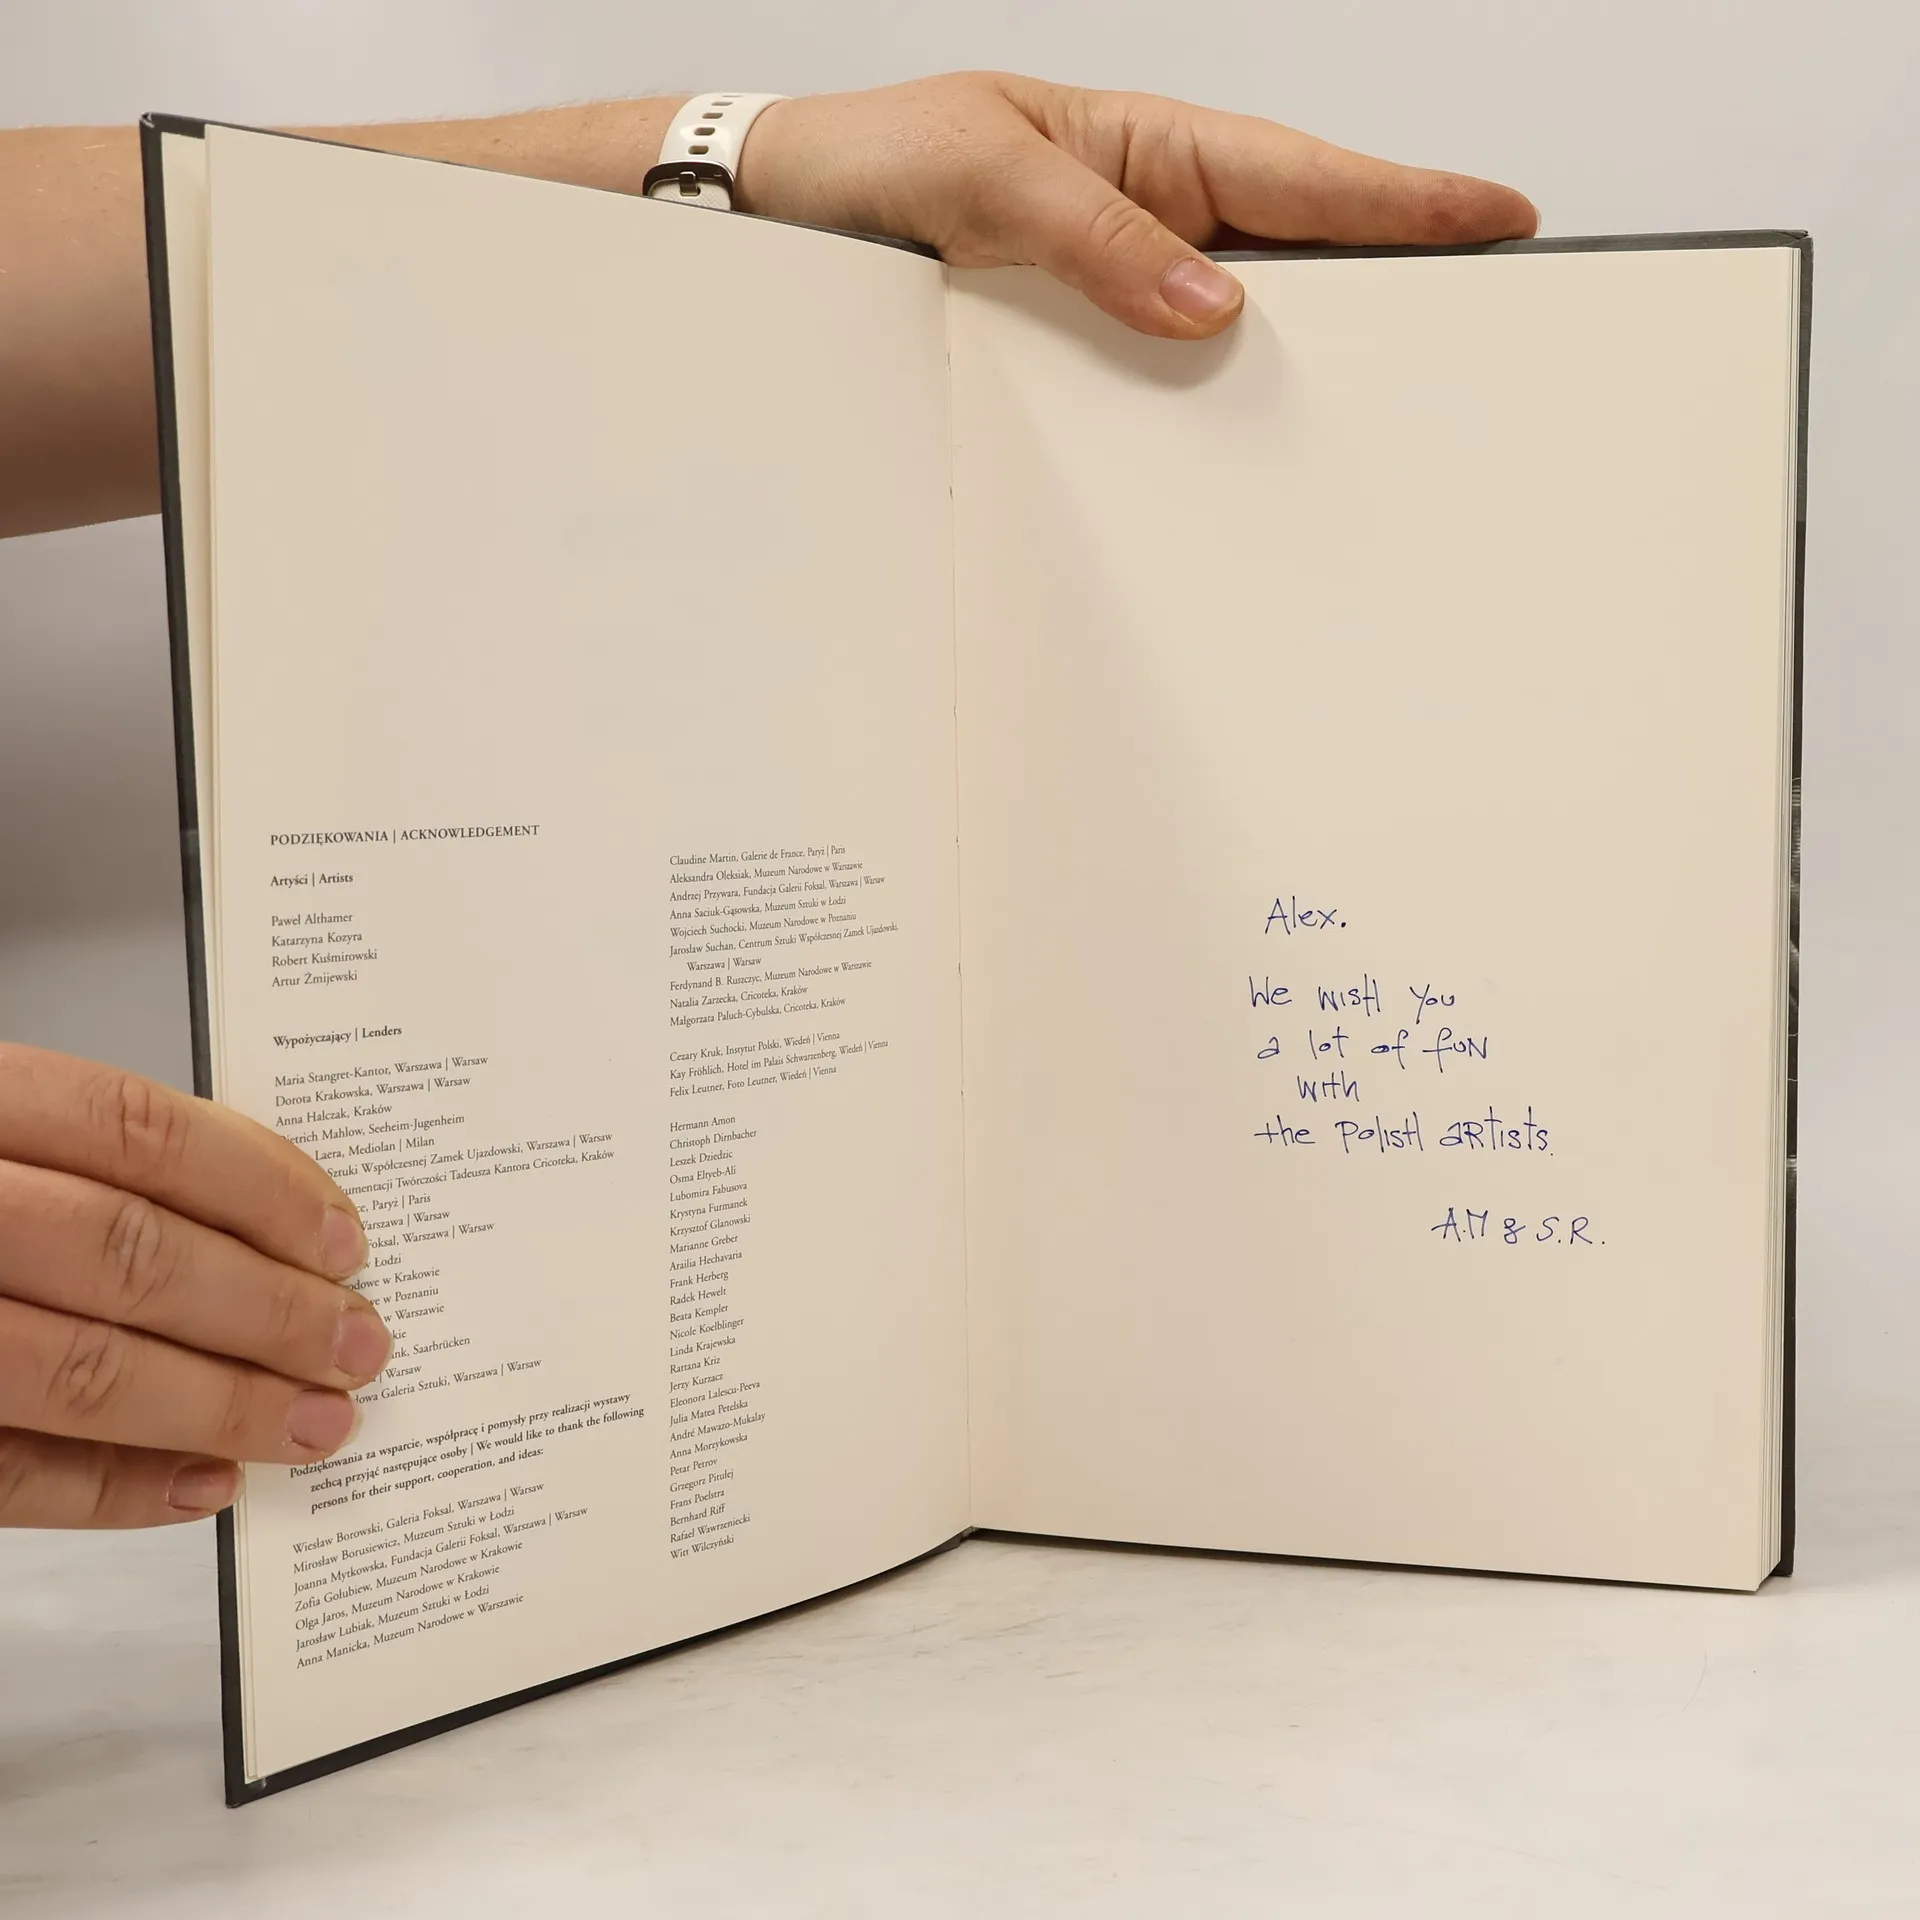 PODZIĘKOWANIA | ACKNOWLEDGEMENT
Artyści | Artists
Paweł Althamer
Katarzyna Kozyra
Robert Kuśmirowski
Artur Żmijewski
Wypożyczający | Lenders
Maria Stangret-Kantor, Warszawa | Warsaw
Dorota Krakowska, Warszawa | Warsaw
Anna Halczak, Kraków
Dietrich Mahlow, Seeheim-Jugenheim
Laera, Mediolan | Milan
Sztuki Współczesnej Zamek Ujazdowski, Warszawa | Warsaw
Twórczości Tadeusza Kantora Cricoteka, Kraków
Paryż | Paris
Warszawa | Warsaw
Foksal, Warszawa | Warsaw
w Łodzi
w Krakowie
w Poznaniu
w Warszawie
Saarbrücken
| Warsaw
Galeria Sztuki, Warszawa | Warsaw
Podziękowania za wsparcie, współpracę i pomysły przy realizacji wystawy
zechcą przyjąć następujące osoby | We would like to thank the following
persons for their support, cooperation, and ideas:
Wiesław Borowski, Galeria Foksal, Warszawa | Warsaw
Mirosław Borusiewicz, Muzeum Sztuki w Łodzi
Joanna Mytkowska, Fundacja Galerii Foksal, Warszawa | Warsaw
Zofia Gołubiew, Muzeum Narodowe w Krakowie
Olga Jaros, Muzeum Narodowe w Krakowie
Jarosław Lubiak, Muzeum Sztuki w Łodzi
Anna Manicka, Muzeum Narodowe w Warszawie
Claudine Martin, Galerie de France, Paryż | Paris
Aleksandra Oleksiak, Muzeum Narodowe w Warszawie
Andrzej Przywara, Fundacja Galerii Foksal, Warszawa | Warsaw
Anna Saciuk-Gąsowska, Muzeum Sztuki w Łodzi
Wojciech Suchocki, Muzeum Narodowe w Poznaniu
Jarosław Suchan, Centrum Sztuki Współczesnej Zamek Ujazdowski,
Warszawa | Warsaw
Ferdynand B. Ruszczyc, Muzeum Narodowe w Warszawie
Natalia Zarzecka, Cricoteka, Kraków
Małgorzata Paluch-Cybulska, Cricoteka, Kraków
Cezary Kruk, Instytut Polski, Wiedeń | Vienna
Kay Fröhlich, Hotel im Palais Schwarzenberg, Wiedeń | Vienna
Felix Leutner, Foto Leutner, Wiedeń | Vienna
Hermann Amon
Christoph Dirnbacher
Leszek Dziedzic
Osma Eltyeb-Ali
Lubomira Fabusova
Krystyna Furmanek
Krzysztof Glanowski
Marianne Greber
Arailia Hechavaria
Frank Herberg
Radek Hewelt
Beata Kempler
Nicole Koelblinger
Linda Krajewska
Rattana Kriz
Jerzy Kurzacz
Eleonora Lalescu-Peeva
Julia Matea Petelska
André Mawazo-Mukalay
Anna Morzykowska
Petar Petrov
Grzegorz Pitulej
Frans Poelstra
Bernhard Riff
Rafael Wawrzeniecki
Witt Wilczyński
Alex.
We wish you
a lot of fun
with
the polish artists.
A.M & S.R.